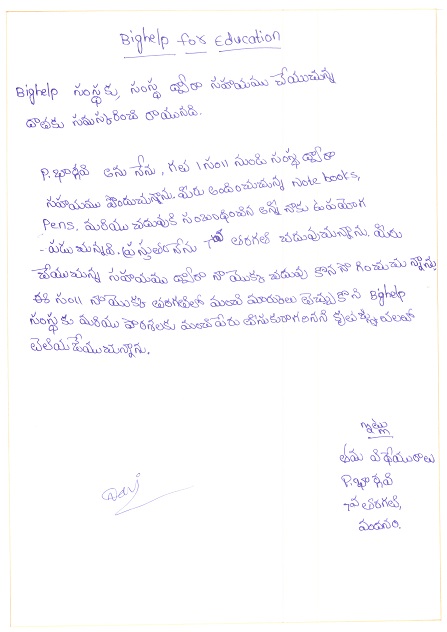 Bighelp for Education
Bighelp సంస్థకు, సంస్థ ద్వారా సహాయము చేయుచున్న
దాతకు నమస్కరించి రాయునది.
P. భార్గవి అను నేను, గత 1 సం॥ నుండి సంస్థ ద్వారా
సహాయము పొందుచున్నాను. మీరు అందించుచున్న Note books,
Pens. మరియు చదువుకి సంబంధించిన అన్నీ నాకు ఉపయోగ
- పడుచున్నవి. ప్రస్తుతం నేను 7వ తరగతి చదువుచున్నాను. మీరు
చేయుచున్న సహాయము ద్వారా నా యొక్క చదువు కొనసాగించుచున్నాను
ఈ సం॥ నా యొక్క తరగతిలో మంచి మార్కులు తెచ్చుకొని Bighelp
సంస్థకు మరియు పాఠశాలకు మంచిపేరు తీసుకురాగలనని కృతజ్ఞతలతో
తెలియజేయుచున్నాను.
ఇట్లు
తమ విధేయురాలు
P. భార్గవి
7వ తరగతి,